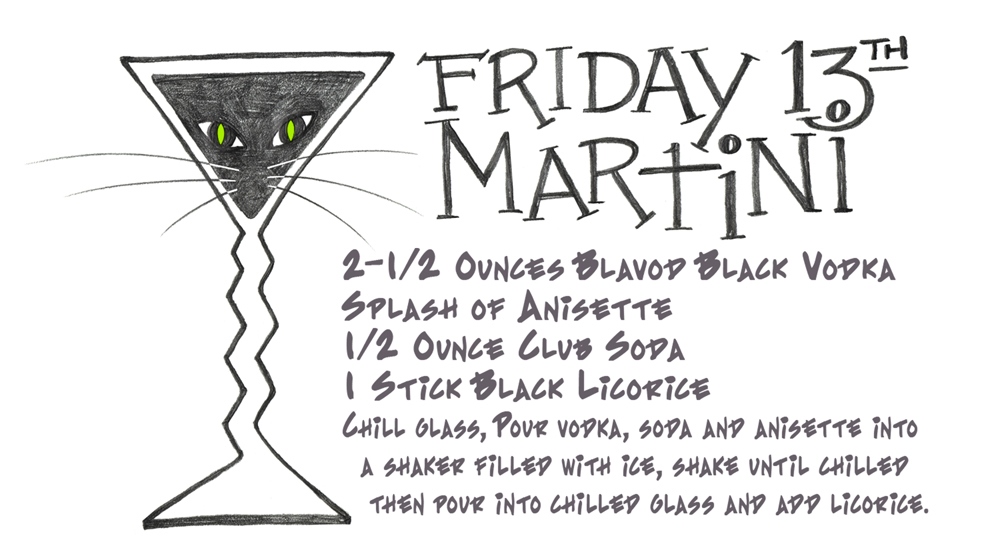 FRIDAY 13TH
MARTiNI
2-1/2 OUNCES BLAVOD BLACK VODKA
SPLASH OF ANiSETTE
1/2 OUNCE CLUB SODA
1 STiCK BLACK LiCORiCE
CHiLL GLASS, POUR VODKA, SODA AND ANiSETTE iNTO
A SHAKER FiLLED WiTH iCE, SHAKE UNTiL CHiLLED
THEN POUR iNTO CHiLLED GLASS AND ADD LiCORiCE.